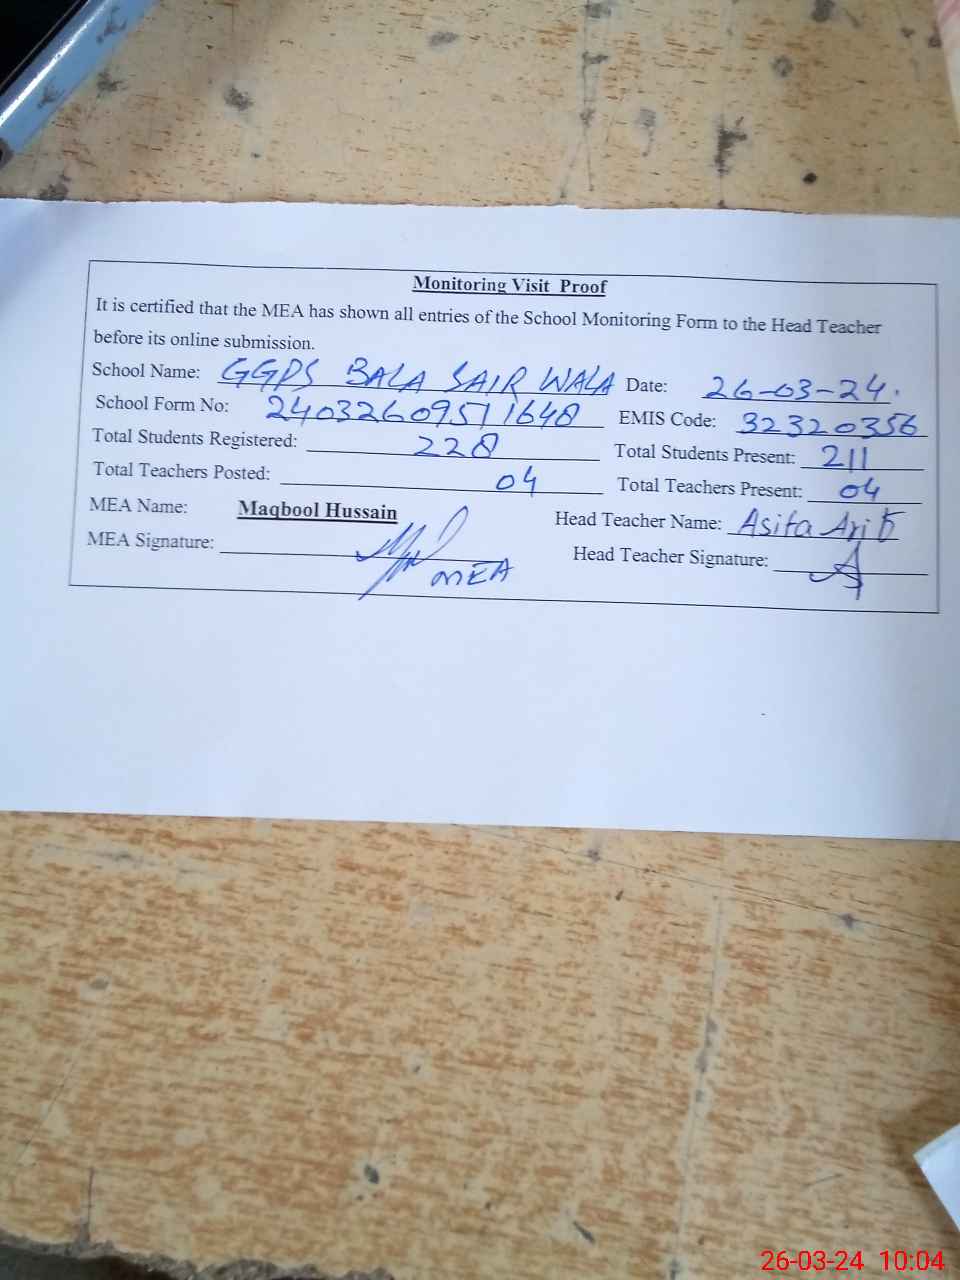 Monitoring Visit Proof
It is certified that the MEA has shown all entries of the School Monitoring Form to the Head Teacher
before its online submission.
School Name: GGPS BALA SAIR WALA Date: 26-03-24.
School Form No: 24032609511648 EMIS Code: 32320356
Total Students Registered: 228 Total Students Present: 211
Total Teachers Posted: 04 Total Teachers Present: 04
MEA Name: Maqbool Hussain Head Teacher Name: Asifa
MEA Signature: MEA Head Teacher Signature:
26-03-24 10:04